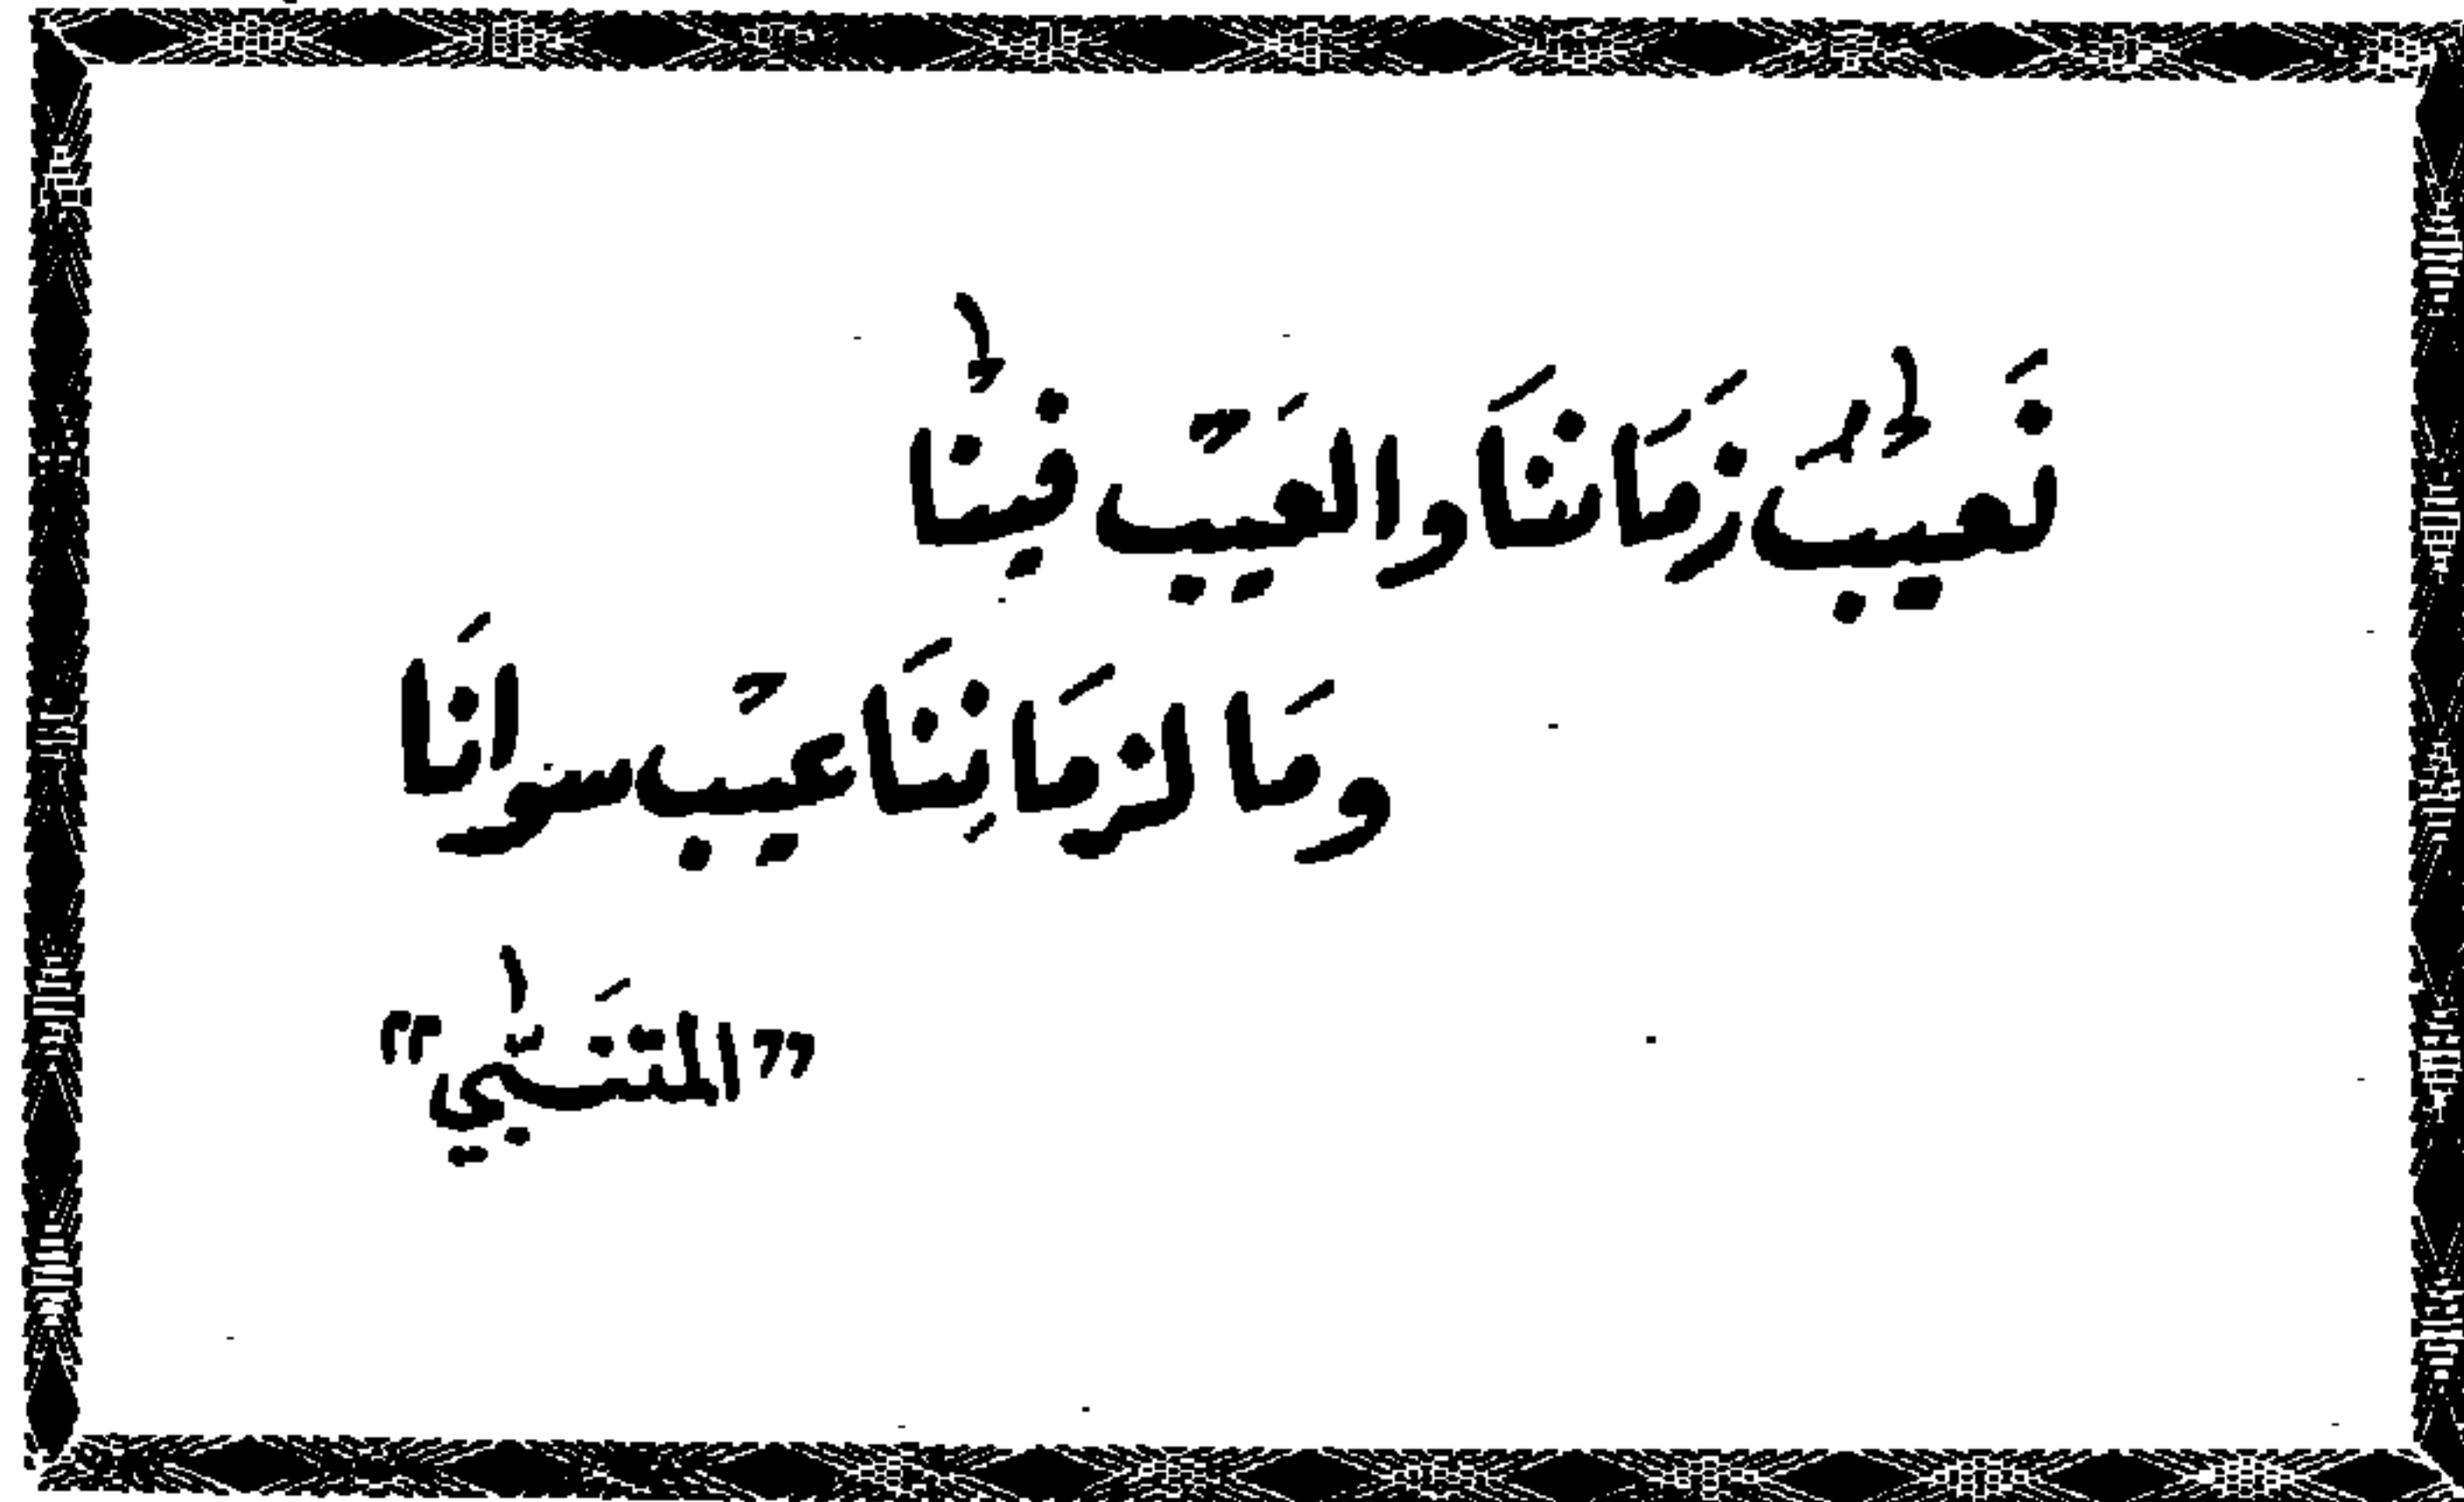 نَعيبُ زَمَانَنَا وَالعَيبُ فينا
وَمَا لزمَانِنَا عيبٌ سوانَا
"المتَنبي"